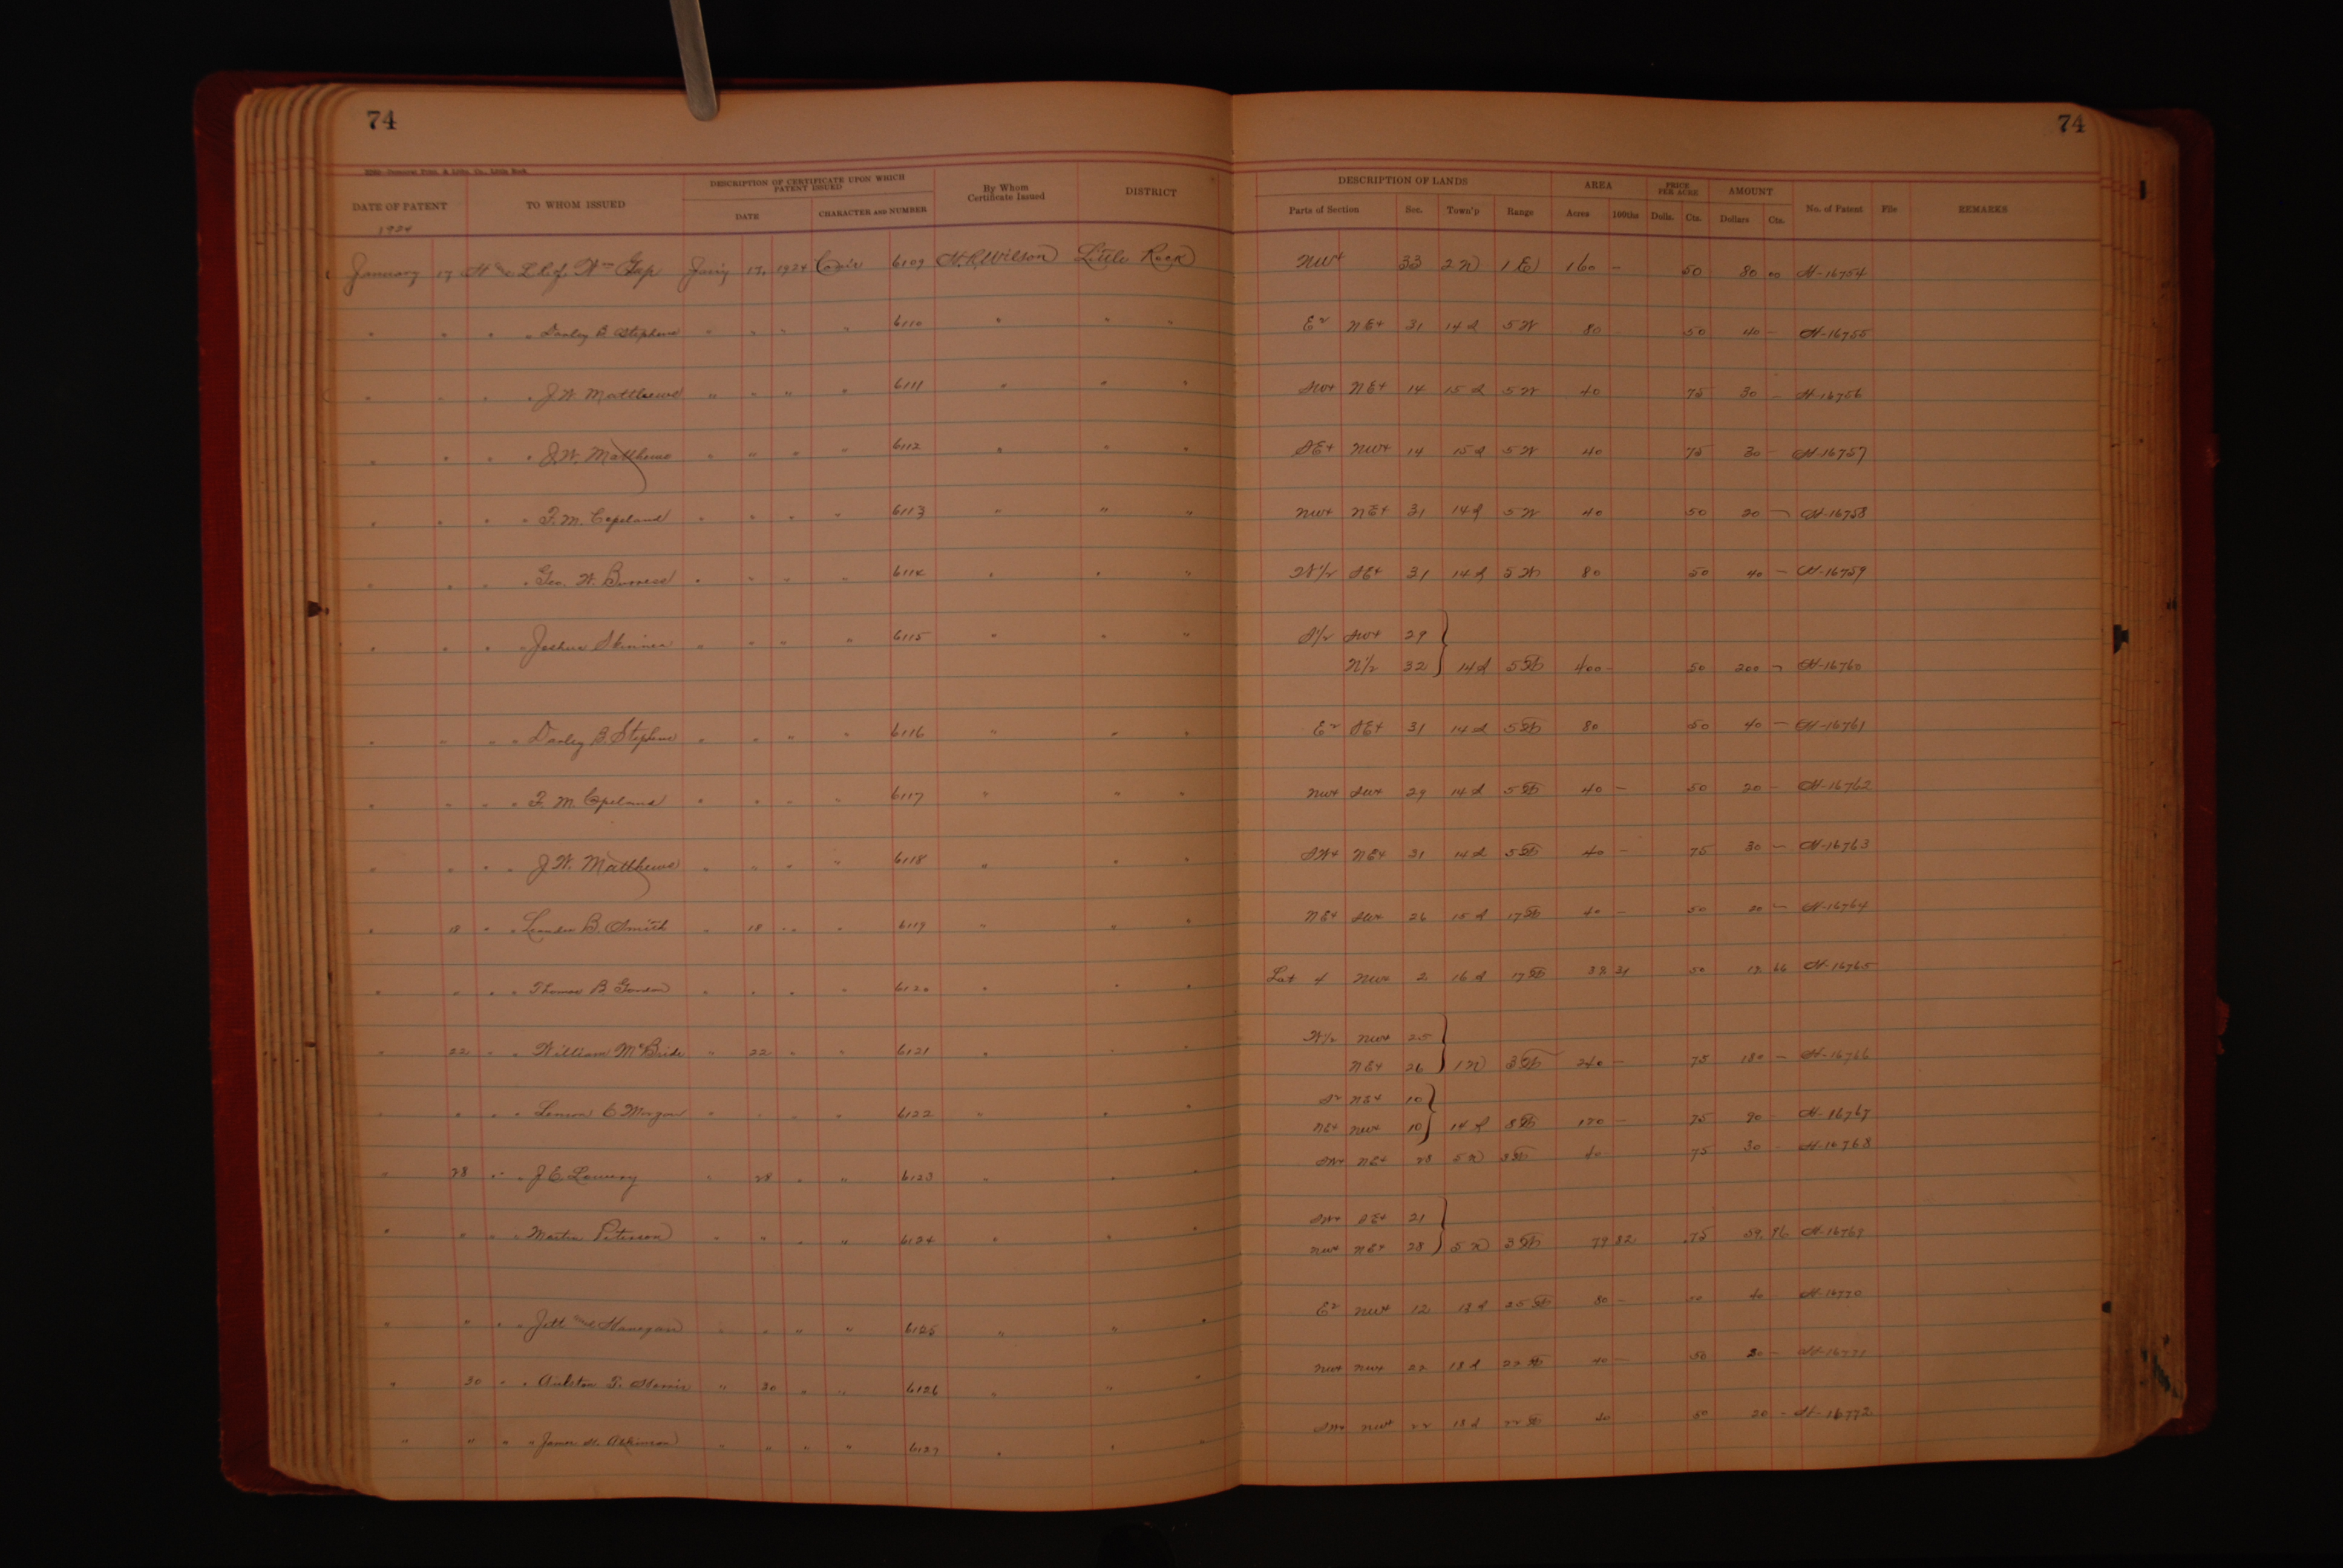 74 74
DESCRIPTION OF CERTIFICATE UPON WHICH PATENT ISSUED DESCRIPTION OF LANDS AREA PRICE PER ACRE AMOUNT
DATE OF PATENT TO WHOM ISSUED DATE CHARACTER AND NUMBER By Whom Certificate Issued DISTRICT Parts of Section Sec. Town'p Range Acres 100ths Dolls. Cts. Dollars Cts. No. of Patent File REMARKS
1924
January 17 H & L R of Wm Gap 17, 1924 6109 H.R. Wilson Little Rock NW4 33 2N 1E 160 - 50 80 00 H-16754
" " " " B Stephens " " " " 6110 " " " E2 NE4 31 14S 5W 80 50 40 - H-16755
" " " " J.W. Matthews " " " " 6111 " " " SW4 NE4 14 15S 5W 40 75 30 - H-16756
" " " " J.W. Matthews " " " " 6112 " " " SE4 NW4 14 15S 5W 40 75 30 - H-16757
" " " " F.M. Copeland " " " " 6113 " " " NW4 NE4 31 14S 5W 40 50 20 - H-16758
" " " " Geo. W. " " " " 6114 " " " W1/2 SE4 31 14S 5W 80 50 40 - H-16759
" " " " Joshua Skinner " " " " 6115 " " " S1/2 SW4 29
N1/2 32 14S 5W 400 - 50 200 - H-16760
" " " " B. Stephens " " " " 6116 " " " E2 SE4 31 14S 5W 80 50 40 - H-16761
" " " " F.M. Copeland " " " " 6117 " " " NW4 SW4 29 14S 5W 40 - 50 20 - H-16762
" " " " J.W. Matthews " " " " 6118 " " " SW4 NE4 31 14S 5W 40 - 75 30 - H-16763
" 18 " " Leander B. Smith " 18 " " " 6119 " " " NE4 SW4 26 15S 17W 40 - 50 20 - H-16764
" " " " Thomas B " " " " 6120 " " " Lot 4 NW4 2 16S 17W 31 50 66 H-16765
" 22 " " William McBride " 22 " " 6121 " " " W1/2 NW4 25
NE4 26 1N 3W 240 - 75 180 - H-16766
" " " " C. Morgan " " " " 6122 " " " S2 NE4 10
NE4 NW4 10 14S 8W 120 - 75 90 - H-16767
" 28 " " J.E. Lowery " 28 " " 6123 " " " SW4 NE4 28 5N 3W 40 75 30 - H-16768
" " " " Martin Peterson " " " " 6124 " " " SW4 SE4 21
NW4 NE4 28 5N 3W 79 82 .75 59. 86 H-16769
" " " " Jett " " " " 6125 " " " E2 NW4 12 13S 25W 80 - 50 40 - H-16770
" 30 " " " 30 " " 6126 " " " NW4 NW4 22 18S 22W 40 - 50 20 - H-16771
" " " " James H. Atkinson " " " " 6127 " " " SW4 NW4 22 18S 22W 40 50 20 - H-16772